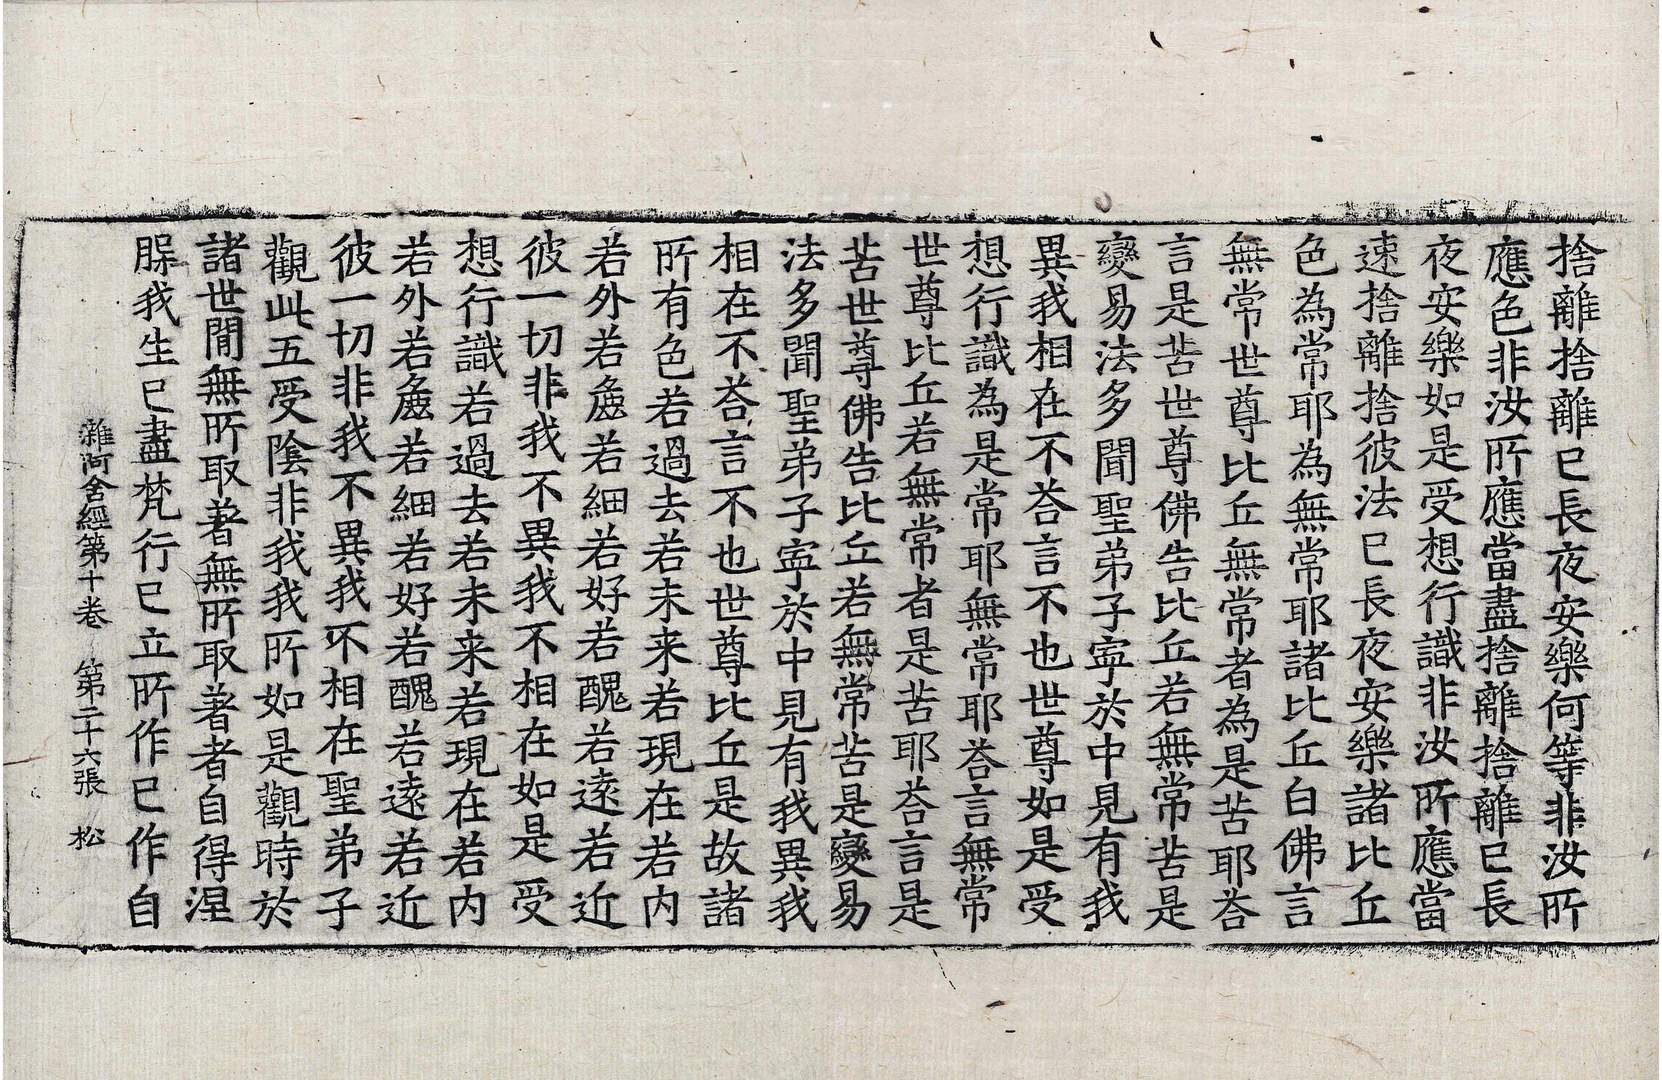 捨離捨離已長夜安樂何等非汝所
應色非汝所應當盡捨離捨離已長
夜安樂如是受想行識非汝所應當
速捨離捨彼法已長夜安樂諸比丘
色為常耶為無常耶諸比丘白佛言
無常世尊比丘無常者為是苦耶荅
言是苦世尊佛告比丘若無常苦是
變易法多聞聖弟子寧於中見有我
異我相在不荅言不也世尊如是受
想行識為是常耶無常耶荅言無常
世尊比丘若無常者是苦耶荅言是
苦世尊佛告比丘若無常苦是變易
法多聞聖弟子寧於中見有我異我
相在不荅言不也世尊比丘是故諸
所有色若過去若未来若現在若内
若外若麁若細若好若醜若遠若近
彼一切非我不異我不相在如是受
想行識若過去若未来若現在若内
若外若麁若細若好若醜若遠若近
彼一切非我不異我不相在聖弟子
觀此五受陰非我我所如是觀時於
諸世閒無所取著無所取著者自得涅
槃我生已盡梵行已立所作已作自
雜阿含經第十卷 第二十六張 松